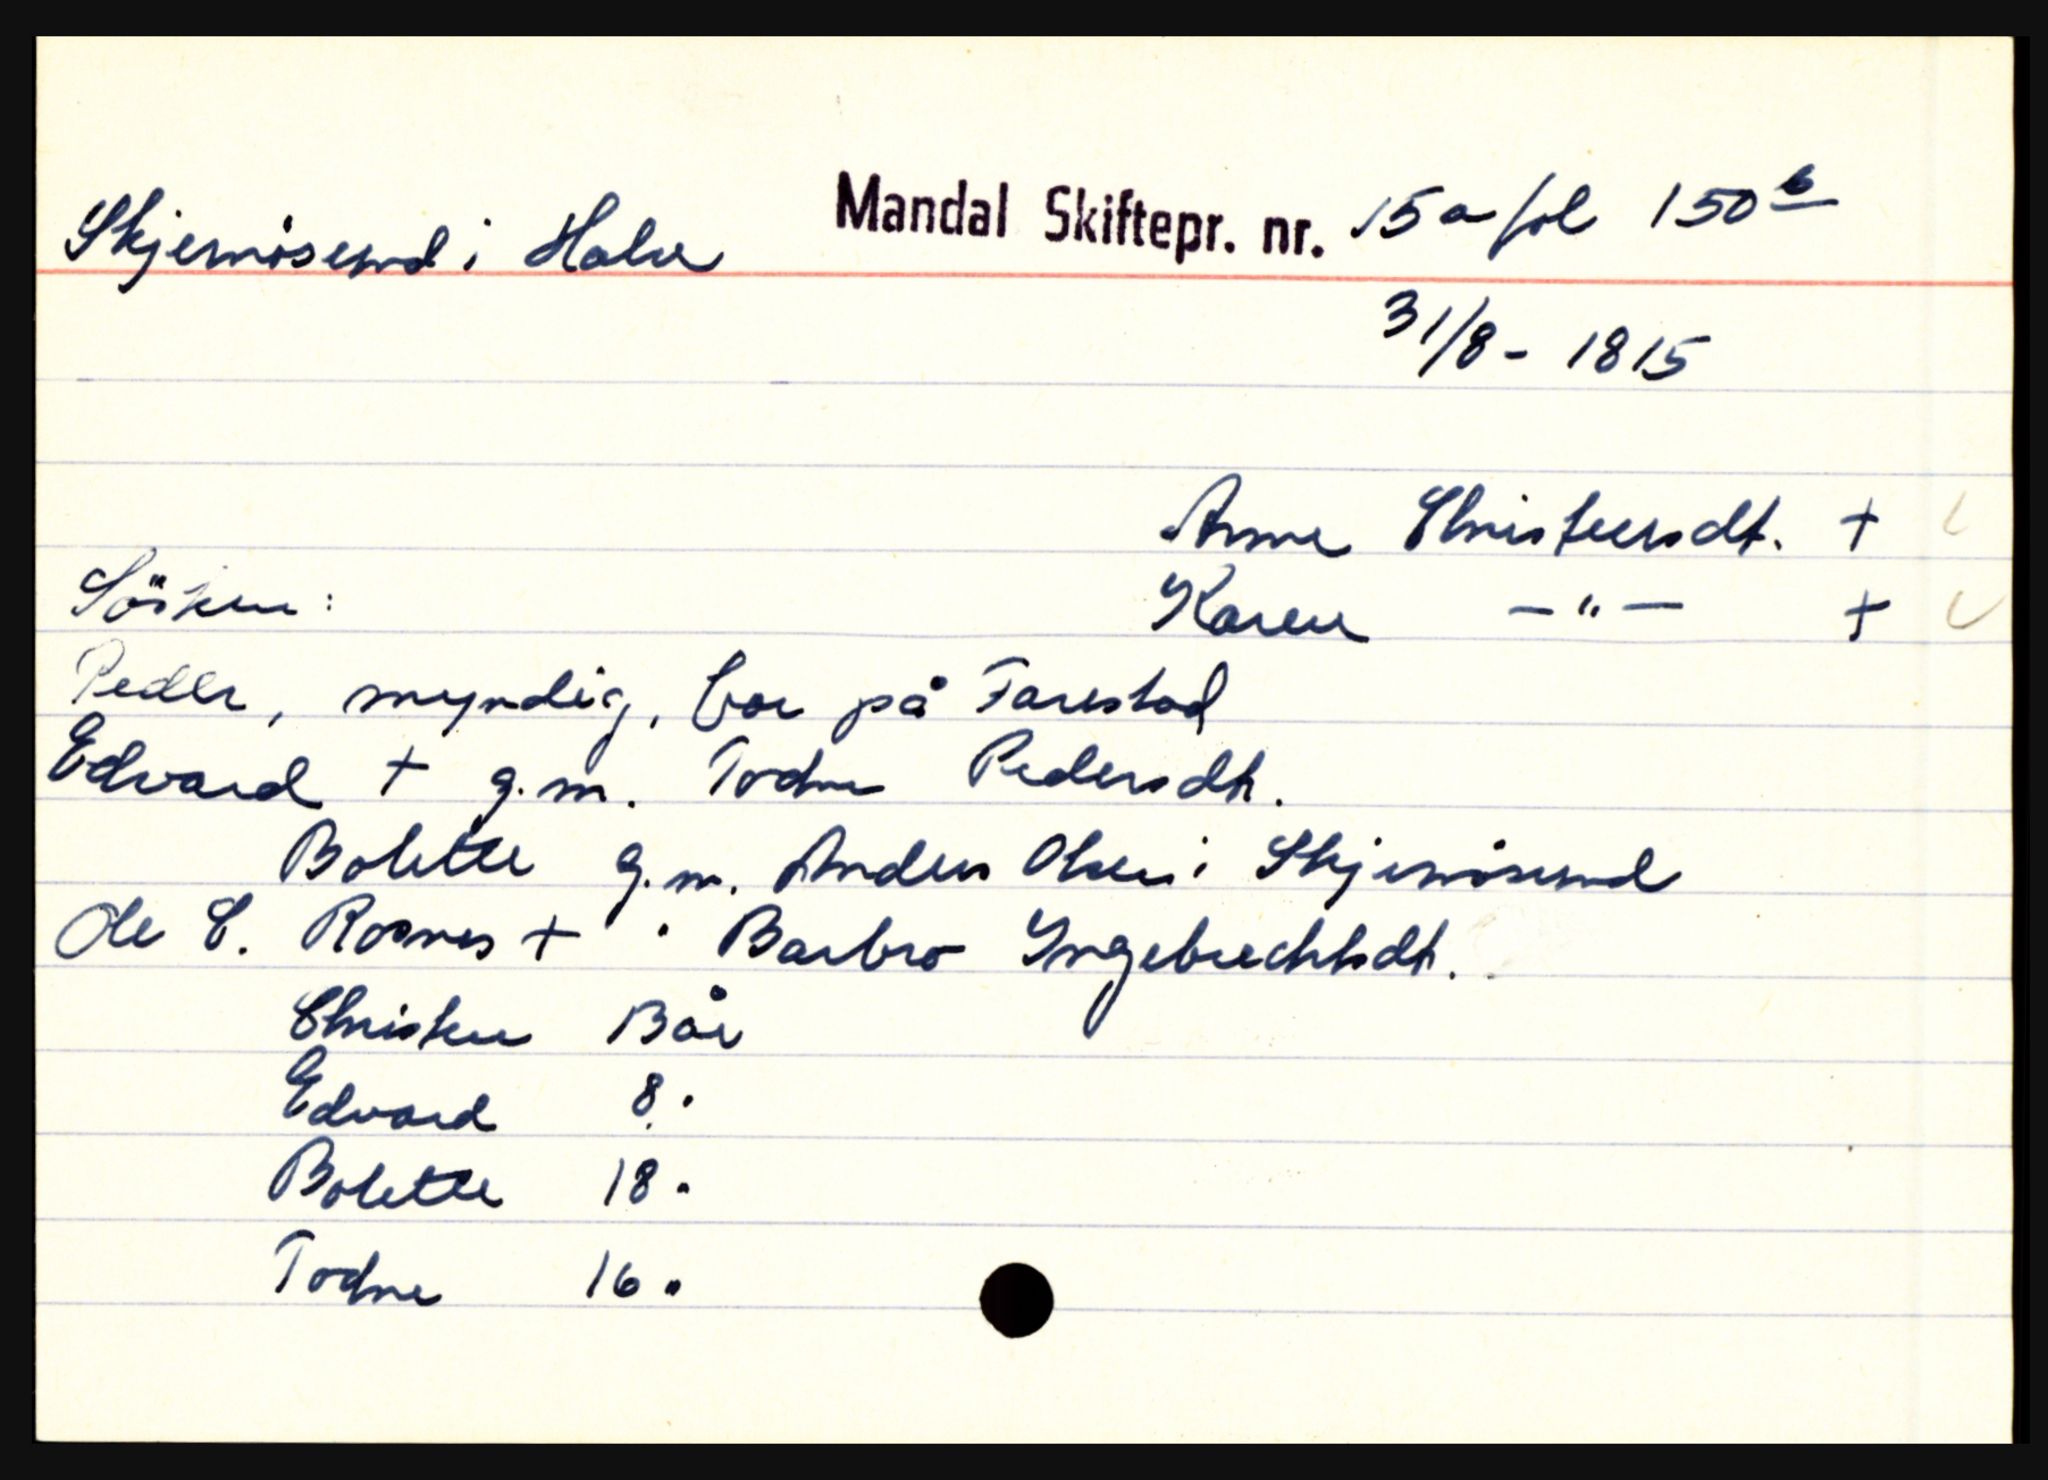 Skjernøsund i Halse Mandal Skiftepr. nr. 15a fol 150 b
31/8 - 1815
Anne Christensdt. +
Søsken: Karen - " - +
Peder, myndig, bor på Farestad
Edvard + g.m. Todne Pedersdt.
Bolette g.m. Anders Olsen i Skjernøsund
Ole C. Rosnes + " Barbro Yngebrechtsdt.
Christen 13 år
Edvard 8 "
Bolette 18 "
Todne 16 "